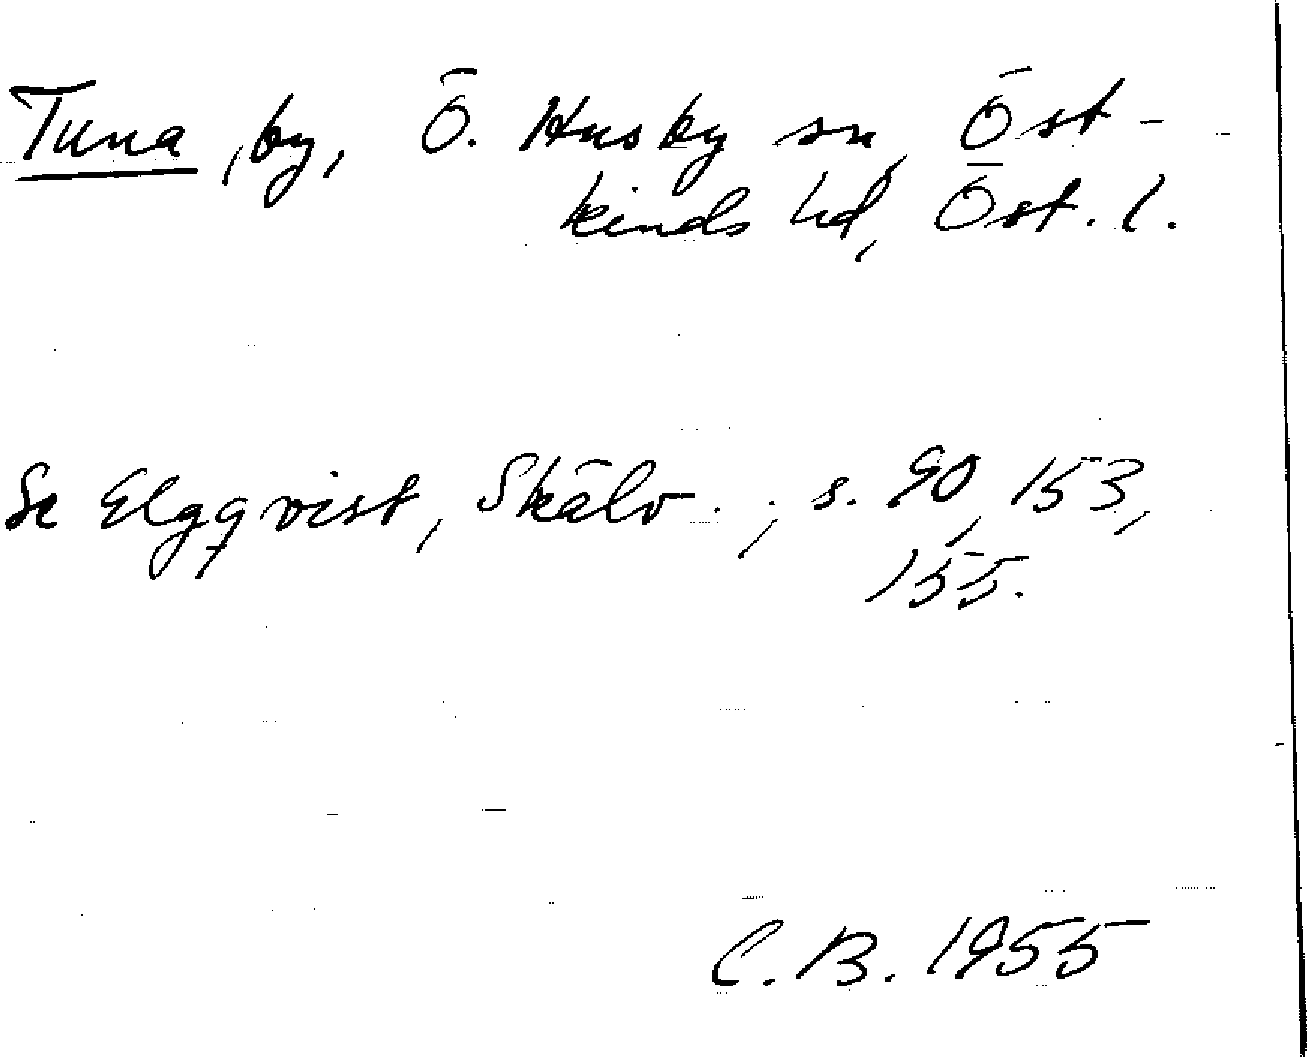 Tuna, by, Ö. Husby sn, Öst-
kinds hd, Öst. l.
Se Elgqvist, Skälv . . , s. 90, 153,
155.
C. B. 1955